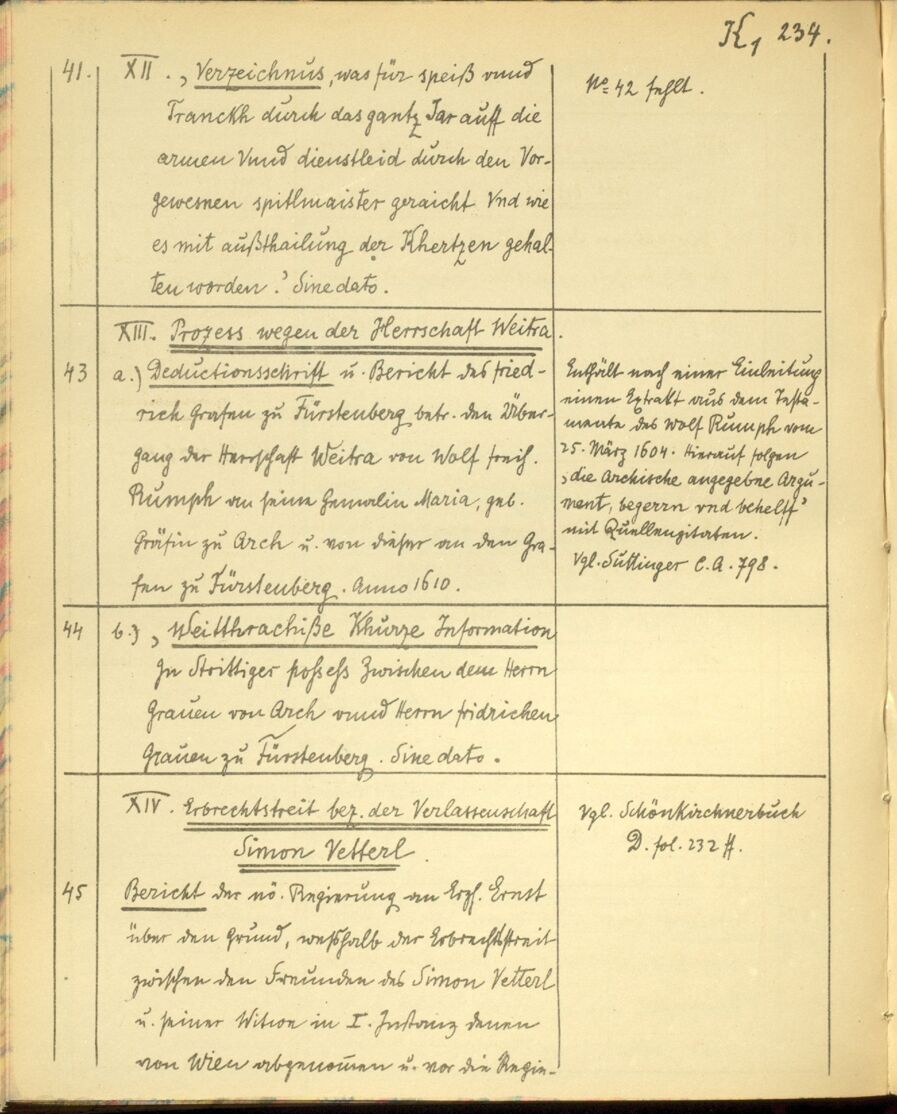 K, 234.
41. XII. „Verzeichnus, was für speiß vnnd
Tranckh durch das gantz Jar auff die
armen Vnnd dienstleid durch den Vor-
gewesnen spitlmaister geraicht Vnd wie
es mit außthailung der Khertzen gehal-
ten worden.“ Sine dato.
No 42 fehlt.
XIII. Prozess wegen der Herrschaft Weitra.
43 a.) Deductionsschrift u. Bericht des fried-
rich Grafen zu Fürstenberg betr. den Über-
gang der Herrschaft Weitra von Wolf freih.
Rumph an seine Gemalin Maria, geb.
Gräfin zu Arch u. von dieser an den Gra-
fen zu Fürstenberg. Anno 1610.
Enthält nach einer Einleitung
einen Extrakt aus dem Testa-
mente des Wolf Rumph vom
25. März 1604. Hierauf folgen
„die Archische angegebne Argu-
ment, begern vnd behelff“
mit Quellenzitaten.
Vgl. Suttinger C. A. 798.
44 b.) „Weitthrachiße Khurze Information
In Strittiger possess Zwischen dem Herrn
Grauen von Arch vnnd Herrn fridrichen
Grauen zu Fürstenberg. Sine dato.
XIV. Erbrechtstreit bez. der Verlassenschaft
Simon Vetterl.
Vgl. Schönkirchnerbuch
D. fol. 232 ff.
45 Bericht der nö. Regierung an Erzh. Ernst
über den Grund, weßhalb der Erbrechtsstreit
zwischen den Freunden des Simon Vetterl
u. seiner Witwe in I. Instanz denen
von Wien abgenommen u. vor die Regie-